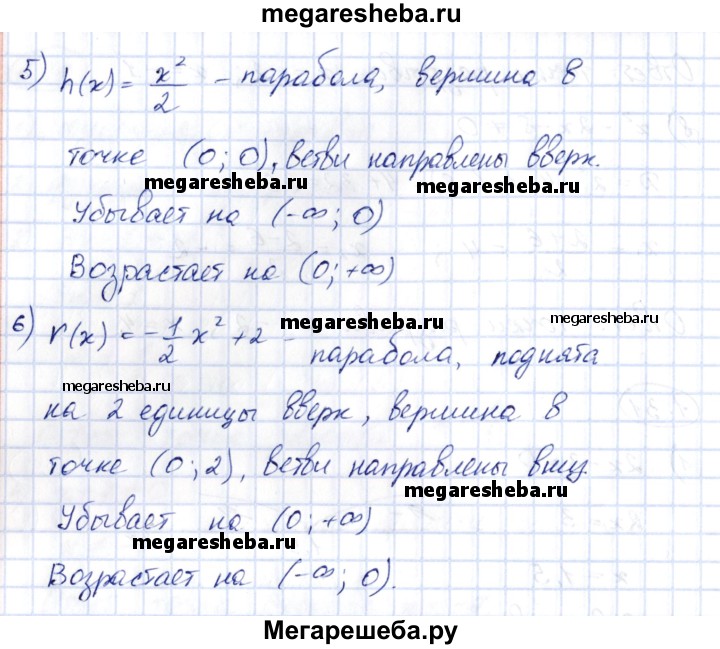 megaresheba.ru
5) h(x) = x²/2 – парабола, вершина в
точке (0; 0), ветви направлены вверх.
megaresheba.ru megaresheba.ru
Убывает на (-∞; 0)
Возрастает на (0; +∞)
6) r(x) = -1/2 x² + 2 – парабола, поднята
megaresheba.ru megaresheba.ru
megaresheba.ru
на 2 единицы вверх, вершина в
точке (0; 2), ветви направлены вниз.
megaresheba.ru
Убывает на (0; +∞)
megaresheba.ru
Возрастает на (-∞; 0).
Мегарешеба.ру